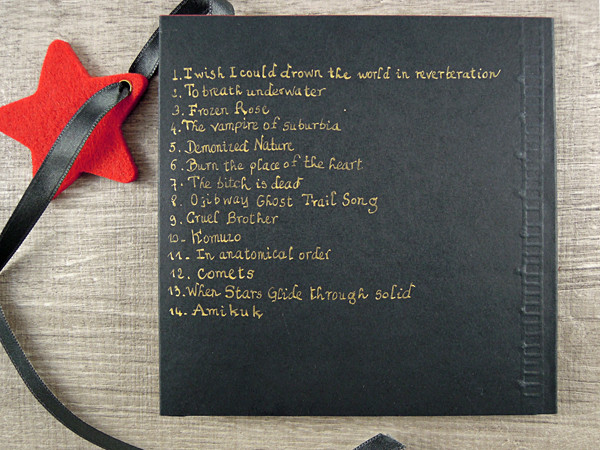 1. I wish I could drown the world in reverberation
2. To breath underwater
3. Frozen Rose
4. The vampire of suburbia
5. Demonized Nature
6. Burn the place of the heart
7. The bitch is dead
8. Ojibway Ghost Trail Song
9. Cruel Brother
10- Komuzo
11- In anatomical order
12. Comets
13. When Stars Glide through solid
14. Amikuk